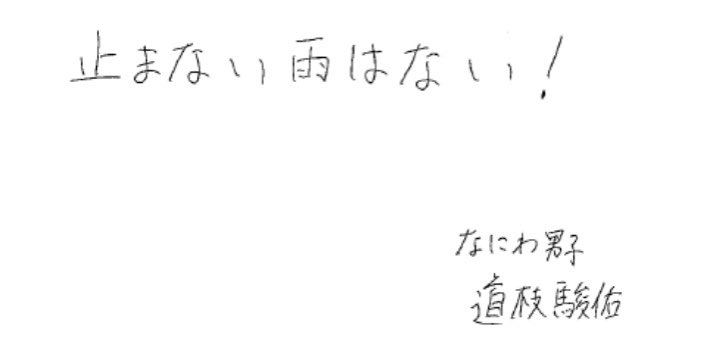 止まない雨はない!
なにわ男子
道枝駿佑